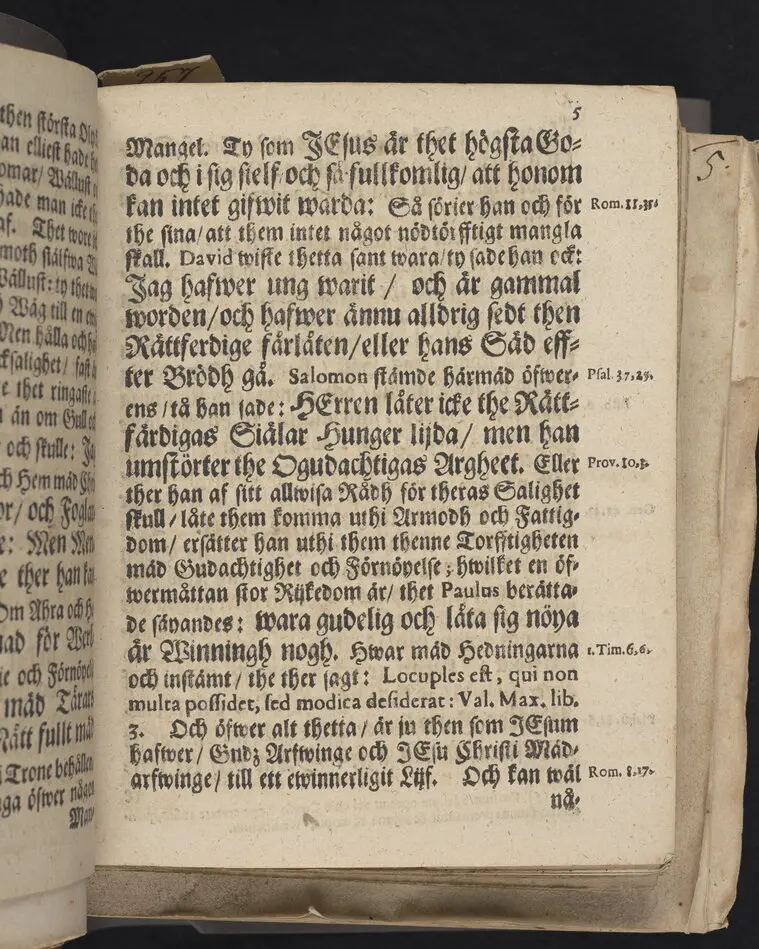 5
Mangel. Ty som JEsus är thet högsta Go-
da och i sig sielf/och så fullkomlig/ att honom
kan intet gifwit warda: Så sörier han och för
Rom. 11,35.
the sina/att them intet något nödtörfftigt mangla
skall. David wiste thetta sant wara/ty sade han ock:
Jag hafwer ung warit / och är gammal
worden/och hafwer ännu alldrig sedt then
Rättferdige färläten/eller hans Säd eff-
ter Brödh gå. Salomon stämde härmäd öfwer-
Psal. 37,25.
ens/tå han sade: HErren låter icke the Rätt-
färdigas Siälar Hunger lijda/ men han
umstörter the Ogudachtigas Argheet. Eller
Prov. 10,3.
ther han af sitt allwisa Rådh för theras Salighet
skull/låte them komma uthi Armodh och Fattig-
dom/ ersätter han uthi them thenne Torfftigheten
mäd Gudachtighet och Förnöyelse; hwilket en öf-
wermåttan stor Rijkedom är/ thet Paulus berätta-
de säyandes: wara gudelig och låta sig nöya
är Winningh nogh. Hwar mäd Hedningarna
1. Tim. 6,6.
och instämt/ the ther sagt: Locuples est, qui non
multa possidet, sed modica desiderat: Val. Max. lib.
3. Och öfwer alt thetta/ är ju then som JEsum
hafwer/ Gudz Arfwinge och JEsu Christi Mäd-
arfwinge/ till ett ewinnerligit Lijf. Och kan wäl
Rom. 8,17.
nå-
then största
an elliest hade
omar/ Wällust
hade man icke
af. Thet wore
moth siälfwa
Wällust: ty
Wäg till en
Men hålla och
salighet/
e thet ringaste
än om Gull
och skulle: Ja
ch Hem mäd
or/ och
e: Men
e ther han
Om Abra och
nad för
ie och Förnöyel
mäd Tårar
Rätt fullt mäd
Trone behålle
ga öfwer någo
5.